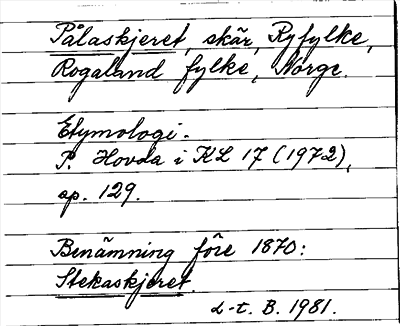 Pålaskjeret, skär, Ryfylke,
Rogaland fylke, Norge.
Etymologi.
P. Hovda i KL 17 (1972),
sp. 129.
Benämning före 1870:
Stekaskjeret.
L-t. B. 1981.